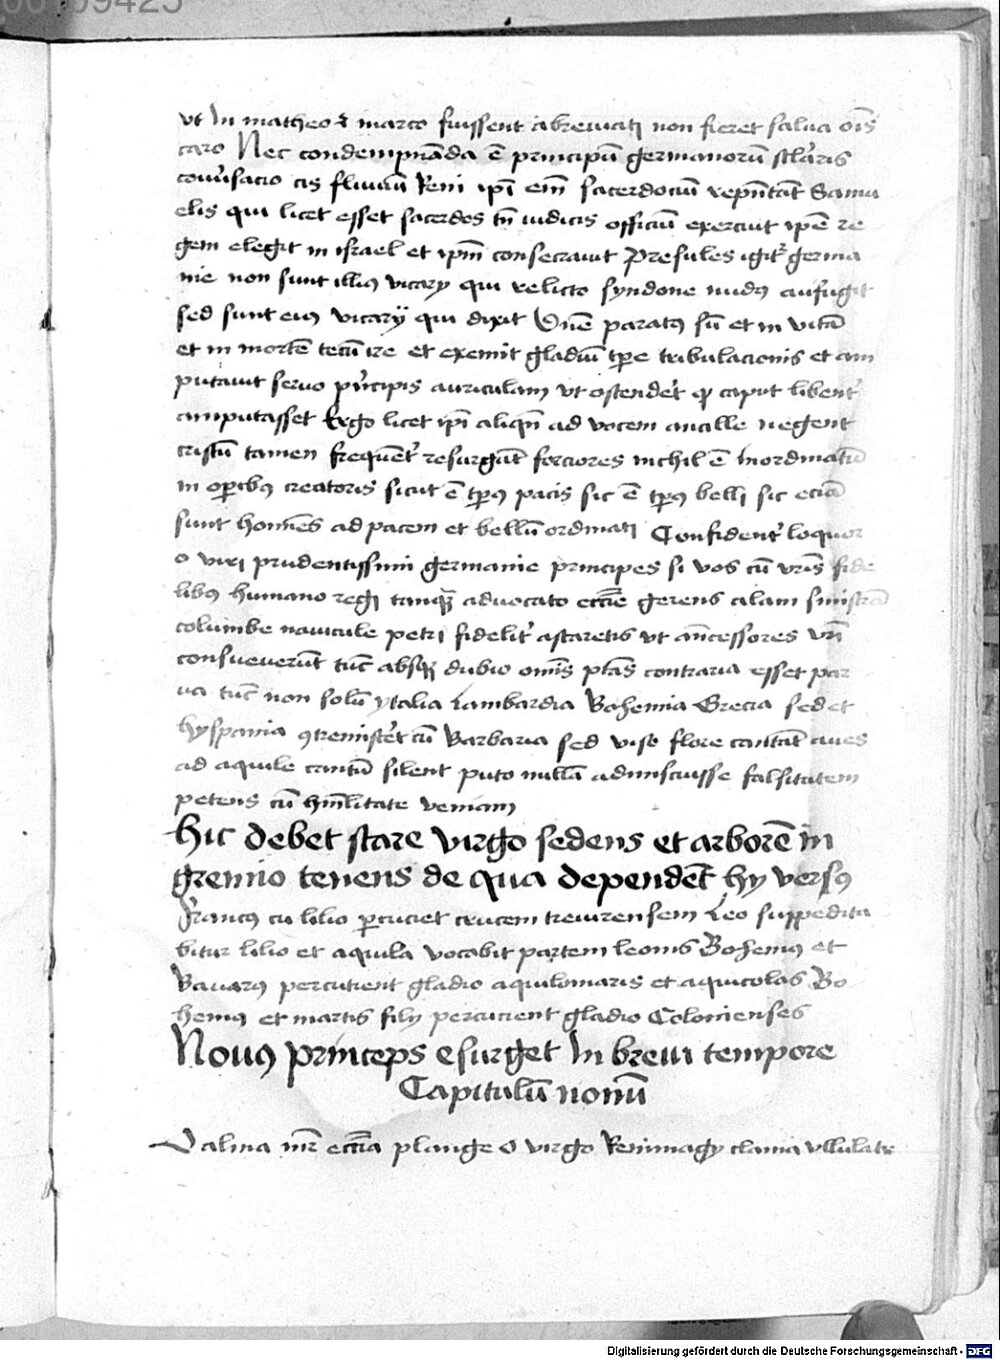 00109425
vt In matheo et marco fuissent abreuiati non fieret salua oīs
caro Nec condempnāda ē principū germanorū sclaris
conūsacio cis fluuiū Reni ipī em̄ sacerdociū repn̄tāt Samu
elis qui licet esset sacerdos tn̄ iudicis officiū exercuit ipē re
gem elegit in israel et ipm̄ consecrauit Presules igitr germa
nie non sunt illius vicarÿ qui relicto syndone nudus aufugit
sed sunt eius vicarÿ qui dixit Dn̄e paratus sū et in vitā
et in mortē tecū ire et exemit gladiū tpre tribulacionis et am
putauit seruo prīcipis auriculam vt ostenderet qp caput libent
amputasset Ergo licet ipī aliqn̄ ad vocem ancille negent
cristū tamen frequent resurgūt forciores nichil ē Inordinatū
in opībus creatoris sicut ē tpus pacis sic ē tpus belli sic eciā
sunt hom̄es ad pacem et bellū ordinati Confident loquor
o viri prudentissimi germanie principes si vos cū vrīs fide
libus humano regi tanqꝫ aduocato eccīe gerens alam sinistrā
columbe nauicule petri fidelit astaretis vt an̄cessores vrī
consueuerūt tūc absqꝫ dubio omīs ptās contraria esset par
ua tūc non solū ytalia Lambardia Bohemia Grecia sed et
hyspania ꝯtremisceret cū Barbaria sed viso flore cantāt aues
ad aquile cantū silent puto nullā admiscuisse falsitatem
petens cū hm̄litate veniam
Hic debet stare virgo sedens et arborē in
gremio tenens de qua dependēt hy versus
Francus cū lilio percuciet crucem treuirensem Leo suppedita
bitur lilio et aquila vocabit partem leonis Bohemus et
Bauarus percutient gladio aquilonaris et aquicolas Bo
hemus et martis filÿ percucient gladio Colonienses
Nouus princeps esurget In breui tempore
Capitulū nonū
Dalma mr̄ eccīa plange o virgo Reninagy clama vllulate
Digitalisierung gefördert durch die Deutsche Forschungsgemeinschaft - DFG